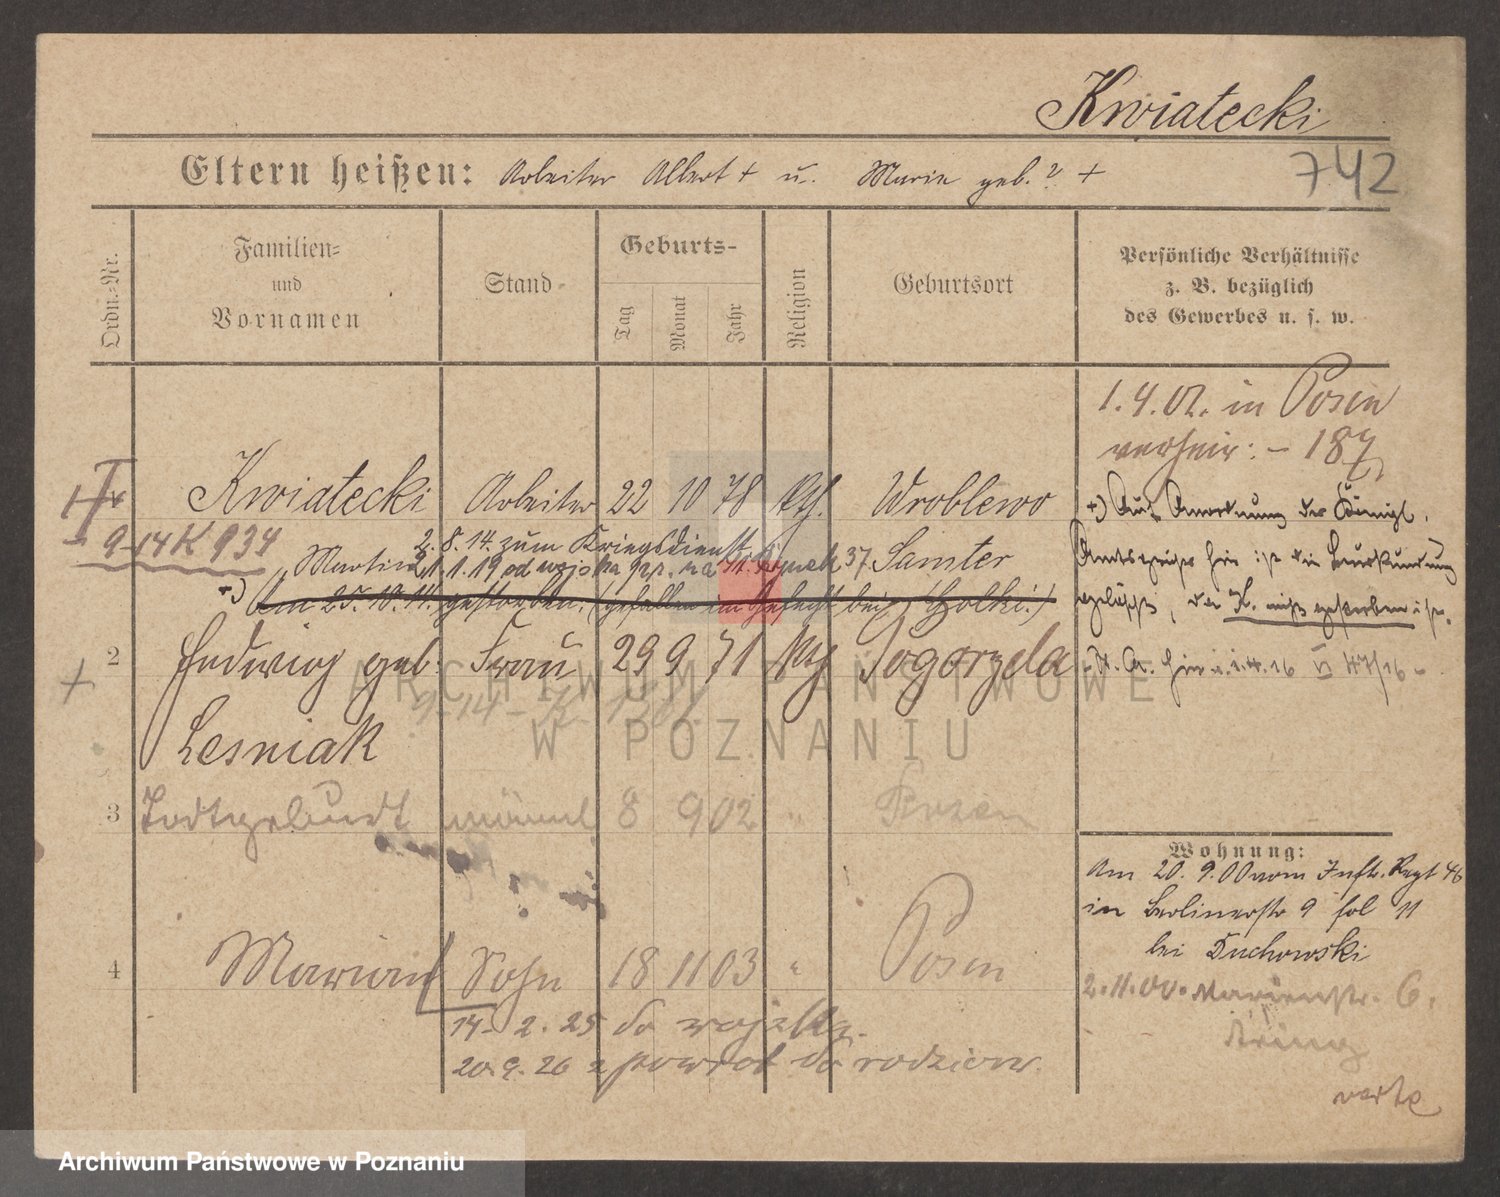 Kwiatecki
Eltern heißen: Arbeiter Albert + u. Marie geb. ? +
742
Ordn.-Nr.
Familien-
und
Vornamen
Stand
Geburts-
Tag
Monat
Jahr
Religion
Geburtsort
Persönliche Verhältnisse
z. B. bezüglich
des Gewerbes u. s. w.
1. 4. 02. in Posen
verheir: - 187
Kwiatecki Arbeiter 22 10 78 kth. Wroblewo
9-14 K 934
Martin 2. 8. 14. zum Kriegsdienst Samter
21. 1. 19 od wojska 37.
+) Am 25. 10. 14. gestorben. (gefallen im Gefecht bei Holki.)
+) Auf Anordnung des Königl.
Amtsgerichts hier ist die Beurkundung
gelöscht, da K. nicht gestorben ist.
St. A. hier 1. 4. 16 VI 47/16 -
2 Hedwig geb. Frau 29 9 71 kth Pogorzela
9-14-K-
Lesniak
3 Todtgeburt männl. 8 9 02 " Posen
4 Marian Sohn 18 11 03 " Posen
14. 2. 25 do wojska.
20. 9. 26 z powrot do rodziców.
Wohnung:
Am 20. 9. 00 vom Inftr. Regt 46
in Berlinerstr 9 fol 11
bei Duchowski
2. 11. 00. Marienstr. 6.
verte
ARCHIWUM PAŃSTWOWE
W POZNANIU
Archiwum Państwowe w Poznaniu